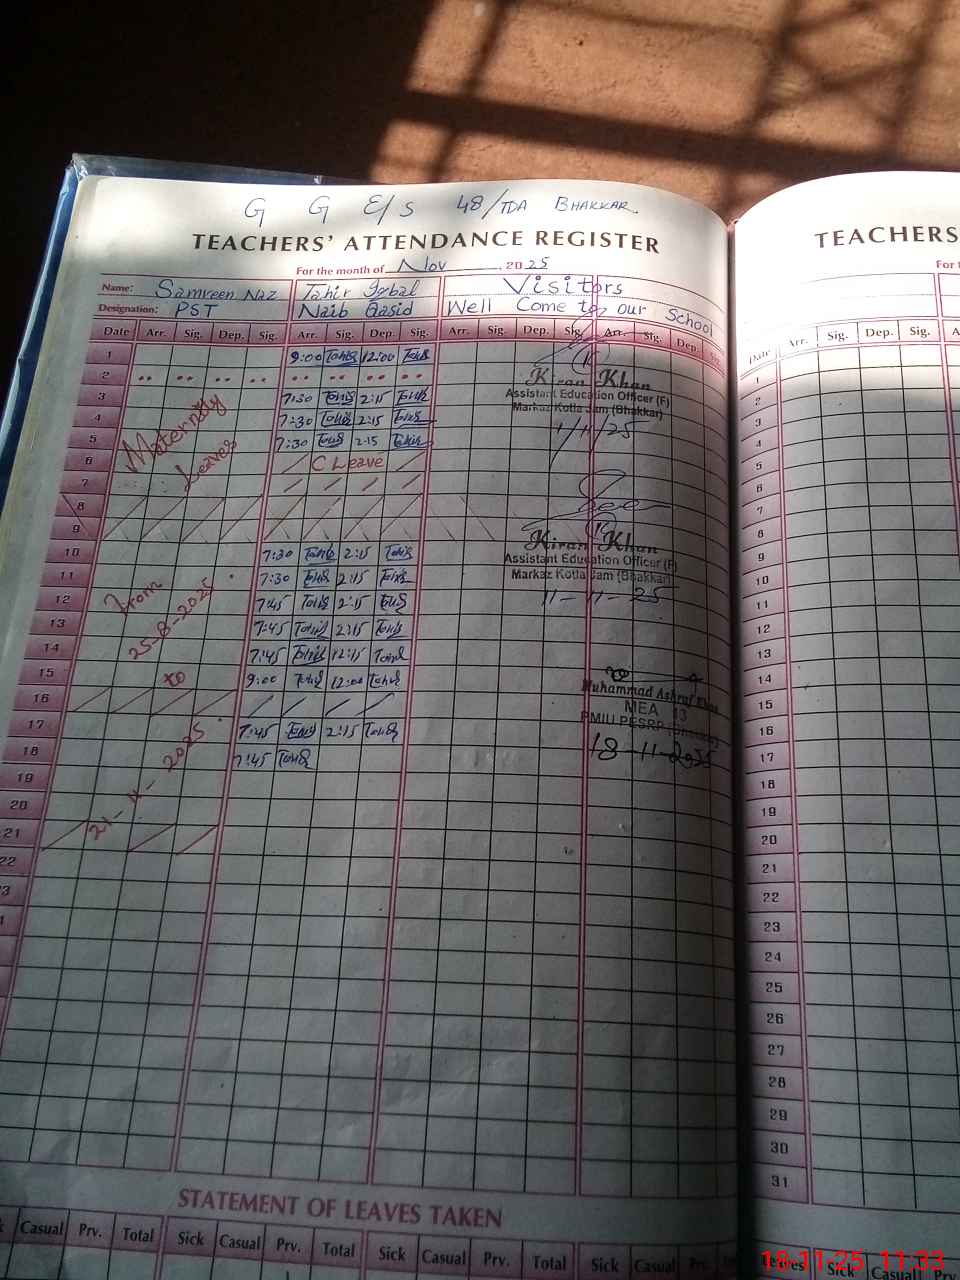 G G E/S 48/TDA BHAKKAR.
TEACHERS' ATTENDANCE REGISTER
For the month of Nov, 2025
Name: Samreen Naz Tahir Iqbal Visitors
Designation: PST Naib Qasid Well Come to our School
Date Arr. Sig. Dep. Sig. Arr. Sig. Dep. Sig. Arr. Sig. Dep. Sig. Arr. Sig. Dep.
1 9:00 Tahir 12:00 Tahir
2
Kiran Khan
Assistant Education Officer (F)
Markaz Kotla Jam (Bhakkar)
1/11/25
3 7:30 Tahir 2:15 Tahir
4 7:30 Tahir 2:15 Tahir
5 7:30 Tahir 2:15 Tahir
Maternity
Leaves
6 C Leave
7
8
9
10 7:30 Tahir 2:15 Tahir
11 7:30 Tahir 2:15 Tahir
Kiran Khan
Assistant Education Officer (F)
Markaz Kotla Jam (Bhakkar)
11-11-25
12 7:45 Tahir 2:15 Tahir
13 7:45 Tahir 2:15 Tahir
14 7:45 Tahir 12:15 Tahir
15 9:00 Tahir 12:00 Tahir
From
25-8-2025
to
21-11-2025
16
17 7:45 Tahir 2:15 Tahir
18 7:45 Tahir
Muhammad Ashraf Khan
MEA 13
PMIU PESRP (Bhakkar)
18-11-2025
19
20
21
22
STATEMENT OF LEAVES TAKEN
Casual Prv. Total Sick Casual Prv. Total Sick Casual Prv. Total Sick Casual Prv.
TEACHERS
Date Arr. Sig. Dep. Sig.
1
2
3
4
5
6
7
8
9
10
11
12
13
14
15
16
17
18
19
20
21
22
23
24
25
26
27
28
29
30
31
Sick Casual
18.11.25 11:33